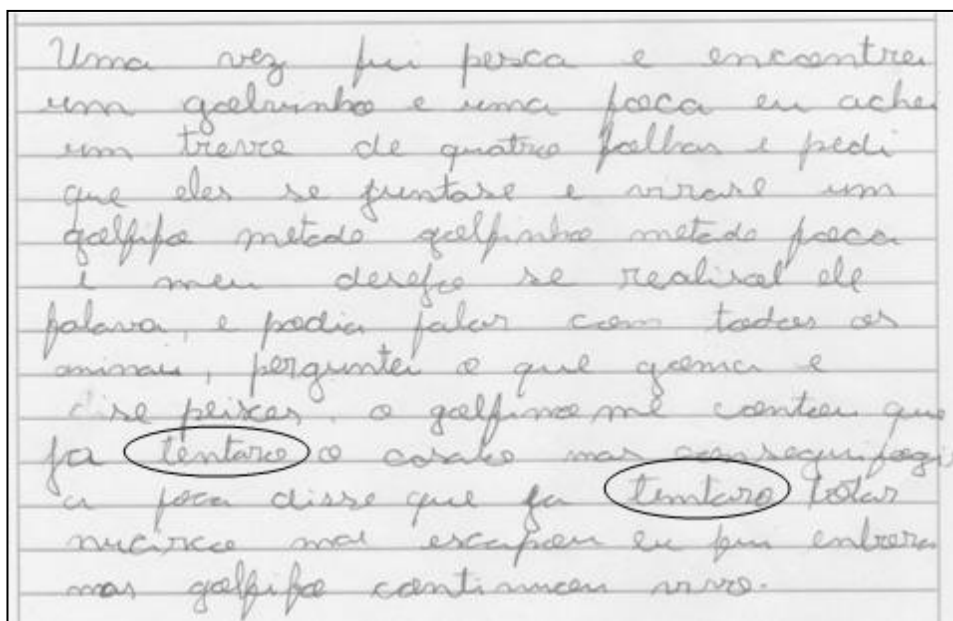 Uma vez fui pesca e encontrei
um golrinho e uma foca eu achei
um trevre de quatro folhas e pedi
que eles se juntase e virase um
golfifo metade golfinho metade foca
e meu desejo se realisol ele
falava, e podia falar com todos os
animais, perguntei o que comia e
dise peixes. o golfino me contou que
ja tentaro o casalo mas consegui fogi
a foca disse que ja temtaro botar
nucirco mai escapou eu fui embora
mas golfifo continuou vivo.